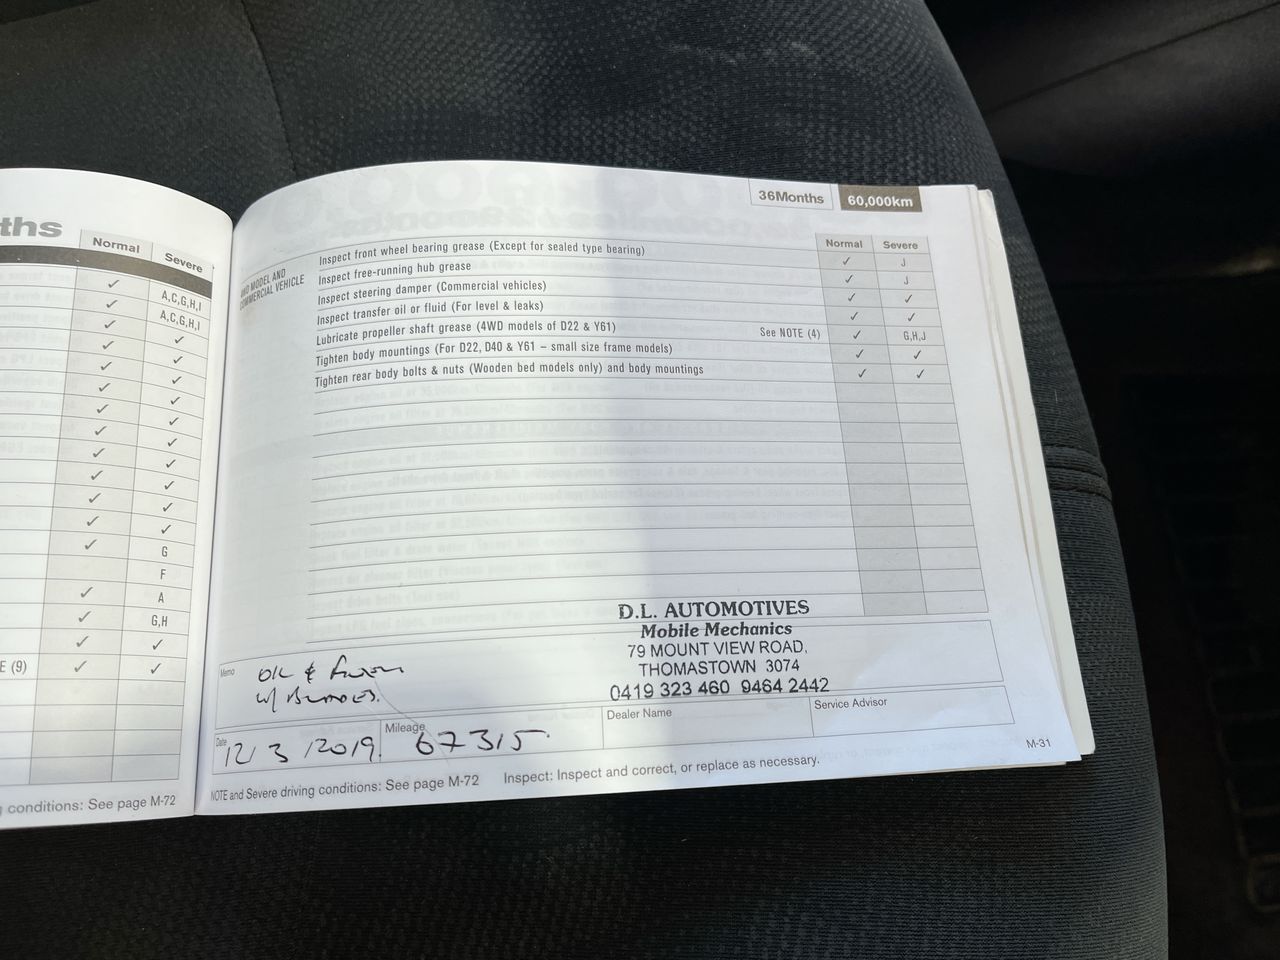 ths
Normal Severe
✓ A,C,G,H,I
✓ A,C,G,H,I
✓ ✓
✓ ✓
✓ ✓
✓ ✓
✓ ✓
✓ ✓
✓ ✓
✓ ✓
✓ ✓
✓ G
F
✓ A
✓ G,H
✓ ✓
E (9) ✓ ✓
conditions: See page M-72
36Months 60,000km
Normal Severe
MODEL AND
COMMERCIAL VEHICLE
Inspect front wheel bearing grease (Except for sealed type bearing) ✓ J
Inspect free-running hub grease ✓ J
Inspect steering damper (Commercial vehicles) ✓ ✓
Inspect transfer oil or fluid (For level & leaks) ✓ ✓
Lubricate propeller shaft grease (4WD models of D22 & Y61) See NOTE (4) ✓ G,H,J
Tighten body mountings (For D22, D40 & Y61 – small size frame models) ✓ ✓
Tighten rear body bolts & nuts (Wooden bed models only) and body mountings ✓ ✓
D.L. AUTOMOTIVES
Mobile Mechanics
79 MOUNT VIEW ROAD,
THOMASTOWN 3074
0419 323 460 9464 2442
Memo OIL &
W/
Date 12/3/2019. Mileage 67315 Dealer Name Service Advisor
NOTE and Severe driving conditions: See page M-72 Inspect: Inspect and correct, or replace as necessary.
M-31